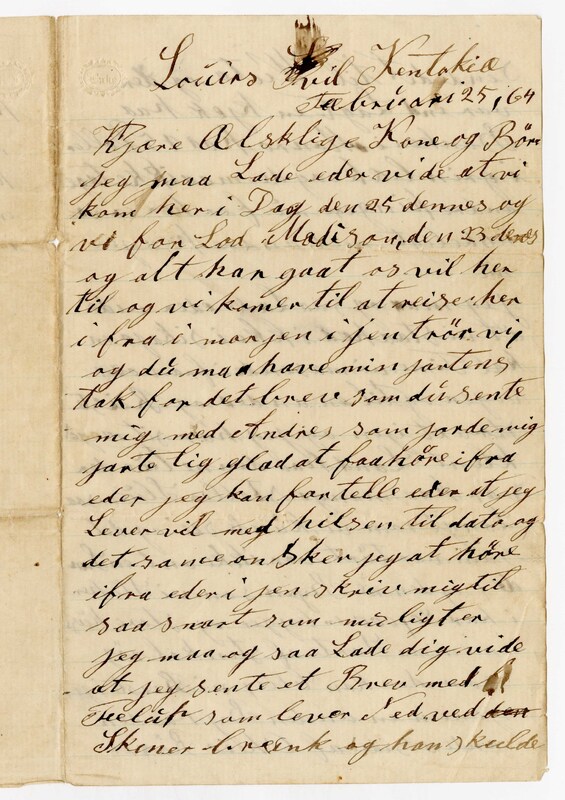 Louirs Svil Kentokiæ
Febrúari 25, 64
Kjære Ælsklige Kone og Bör
jeg maa Lade eder vide at vi
kom her i Dag den 25 dennes og
vi for Lod Madison, den 23 denes
og alt har gaat os vil her
til og vi komer til at reise her
ifra i morjen i jen trör vi,
og dú maa have min jartens
tak for det brev som dú sente
mig med Andres som jorde mig
jarte lig glad at faa höre ifra
eder jeg kan for telle eder at jeg
Lever vil med hilsen til dato og
det same onsker jeg at höre
ifra eder i jen skriv mig til
saa snart som múligt er
jeg maa og saa Lade dig vide
at jeg sente et Brev med
som lever Ned ved den
Skiner og han skulde